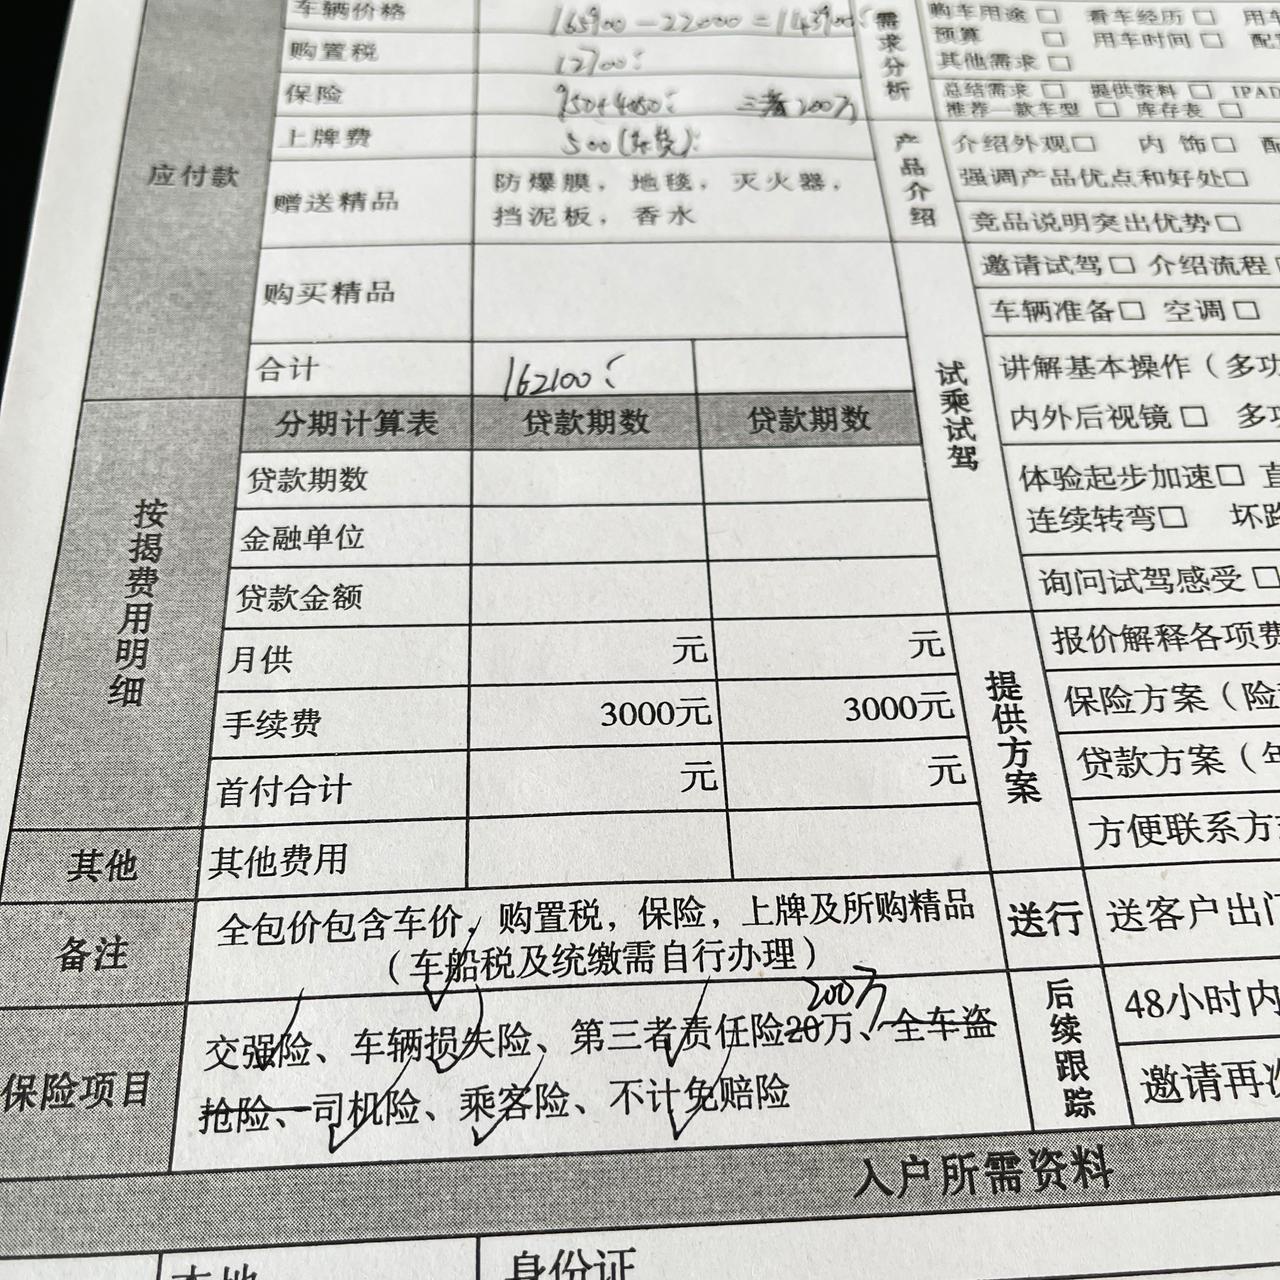 车辆价格 165900-22000=143900
购置税 12700
保险 950+4050 三者200万
上牌费 500
应付款
赠送精品 防爆膜，地毯，灭火器，
挡泥板，香水
购买精品
合计 162100
按揭费用明细
分期计算表 贷款期数 贷款期数
贷款期数
金融单位
贷款金额
月供 元 元
手续费 3000元 3000元
首付合计 元 元
其他 其他费用
备注 全包价包含车价，购置税，保险，上牌及所购精品
（车船税及统缴需自行办理）
200万
保险项目 交强险、车辆损失险、第三者责任险20万、全车盗
抢险、司机险、乘客险、不计免赔险
需求分析
购车用途□ 看车经历□ 用车
预算 □ 用车时间□ 配
其他需求□
总结需求□ 提供资料□ IPAD
推荐一款车型□ 库存表□
产品介绍
介绍外观□ 内饰□ 配
强调产品优点和好处□
竞品说明突出优势□
试乘试驾
邀请试驾□ 介绍流程
车辆准备□ 空调□
讲解基本操作（多功
内外后视镜□ 多功
体验起步加速□ 直
连续转弯□ 坏路
询问试驾感受□
提供方案
报价解释各项费
保险方案（险
贷款方案（年
方便联系方
送行 送客户出门
后续跟踪
48小时内
邀请再次
入户所需资料
本地 身份证